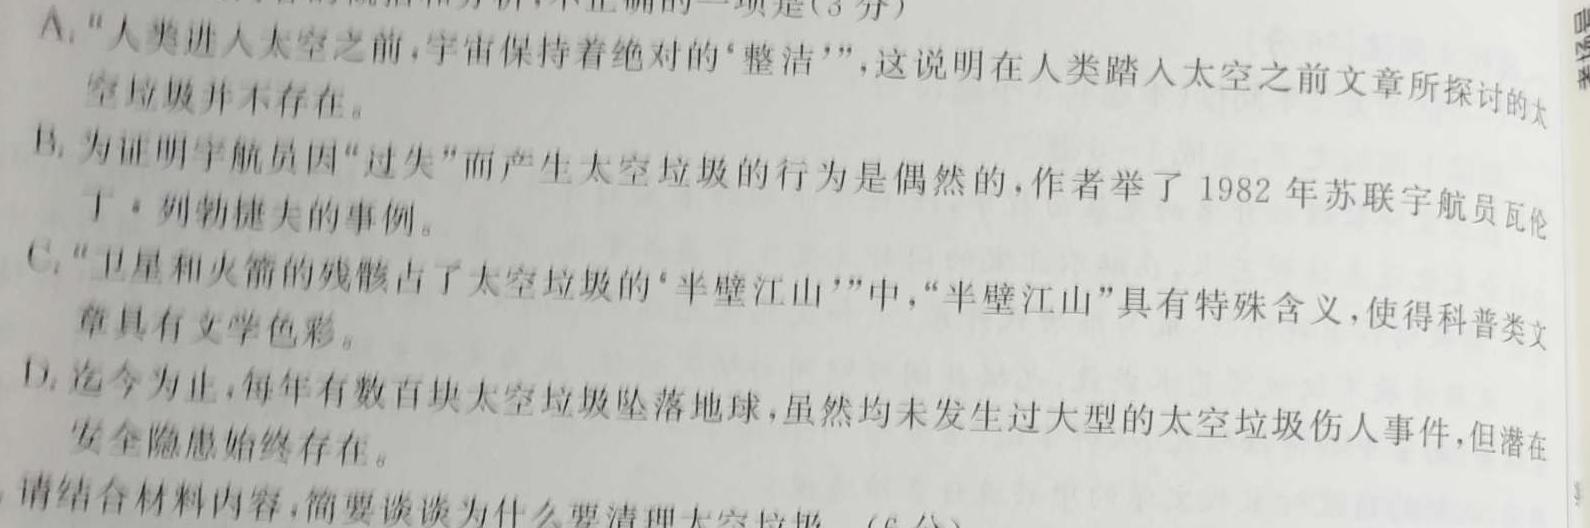 不正确的一项是(3分)
A.“人类进入太空之前,宇宙保持着绝对的‘整洁’”,这说明在人类踏入太空之前文章所探讨的太
空垃圾并不存在。
B.为证明宇航员因“过失”而产生太空垃圾的行为是偶然的,作者举了1982年苏联宇航员瓦伦
丁·列勃捷夫的事例。
C.“卫星和火箭的残骸占了太空垃圾的‘半壁江山’”中,“半壁江山”具有特殊含义,使得科普类文
章具有文学色彩。
D.迄今为止,每年有数百块太空垃圾坠落地球,虽然均未发生过大型的太空垃圾伤人事件,但潜在
安全隐患始终存在。
请结合材料内容,简要谈谈为什么要清理太空垃圾。(6分)